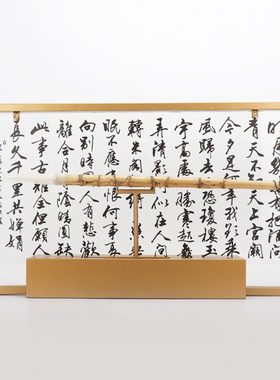 問
青天不知天上宮闕
今夕是何年我欲乘
風歸去恐瓊樓玉
宇高處勝寒起舞
弄清影似在人间
轉朱阁绮户照無
眠不應恨何事長
向别時圓人有悲歡
離合月陰晴圓缺
此事古難全但願人
長久千里共嬋娟